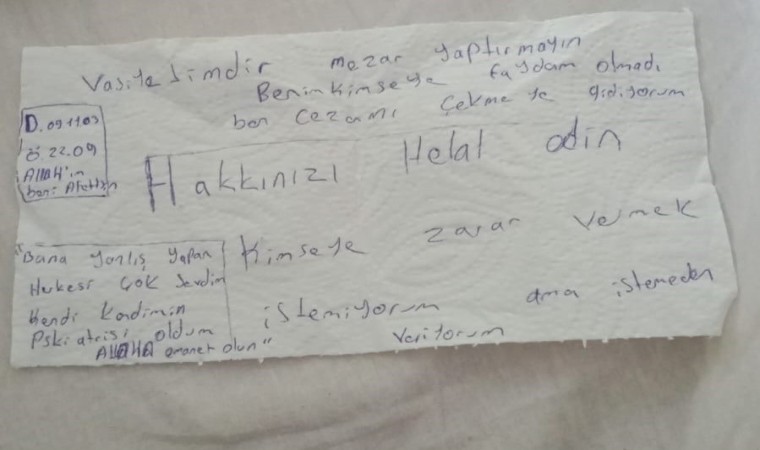 Vasiyetimdir mezar yaptırmayın
Benim kimseye faydam olmadı
ben cezamı çekmeye gidiyorum
D. 09.11.03
Ö 22.09
ALLAH'ım
beni Affettsin
Hakkınızı Helal edin
"Bana yanlış yapan
Herkesi çok sevdim
Kendi Kendimin
Pskiatrisi oldum
ALLAHA emanet olun"
Kimseye zarar vermek
istemiyorum ama istemeden
veriyorum